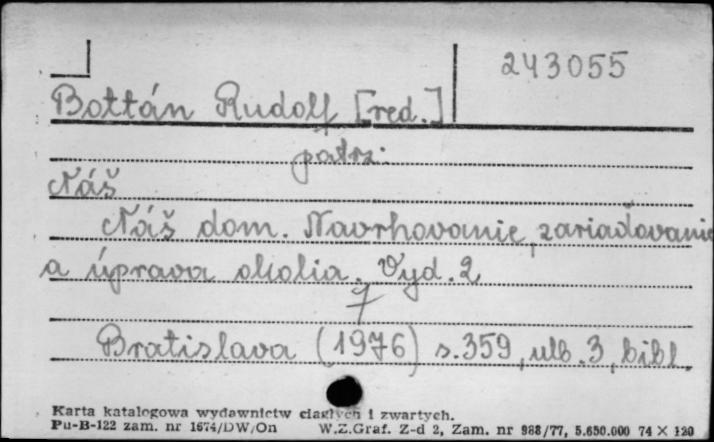 243055
Bottán Rudolf [red.]
patrz:
Náš
Náš dom. Navrhovanie, zariaďovanie
a úprava okolia. Vyd. 2
7
Bratislava (1976) s. 359, ulb. 3, bibl.
Karta katalogowa wydawnictw ciągłych i zwartych.
Pu-B-122 zam. nr 1674/DW/On W.Z.Graf. Z-d 2, Zam. nr 988/77, 5.650.000 74 × 120